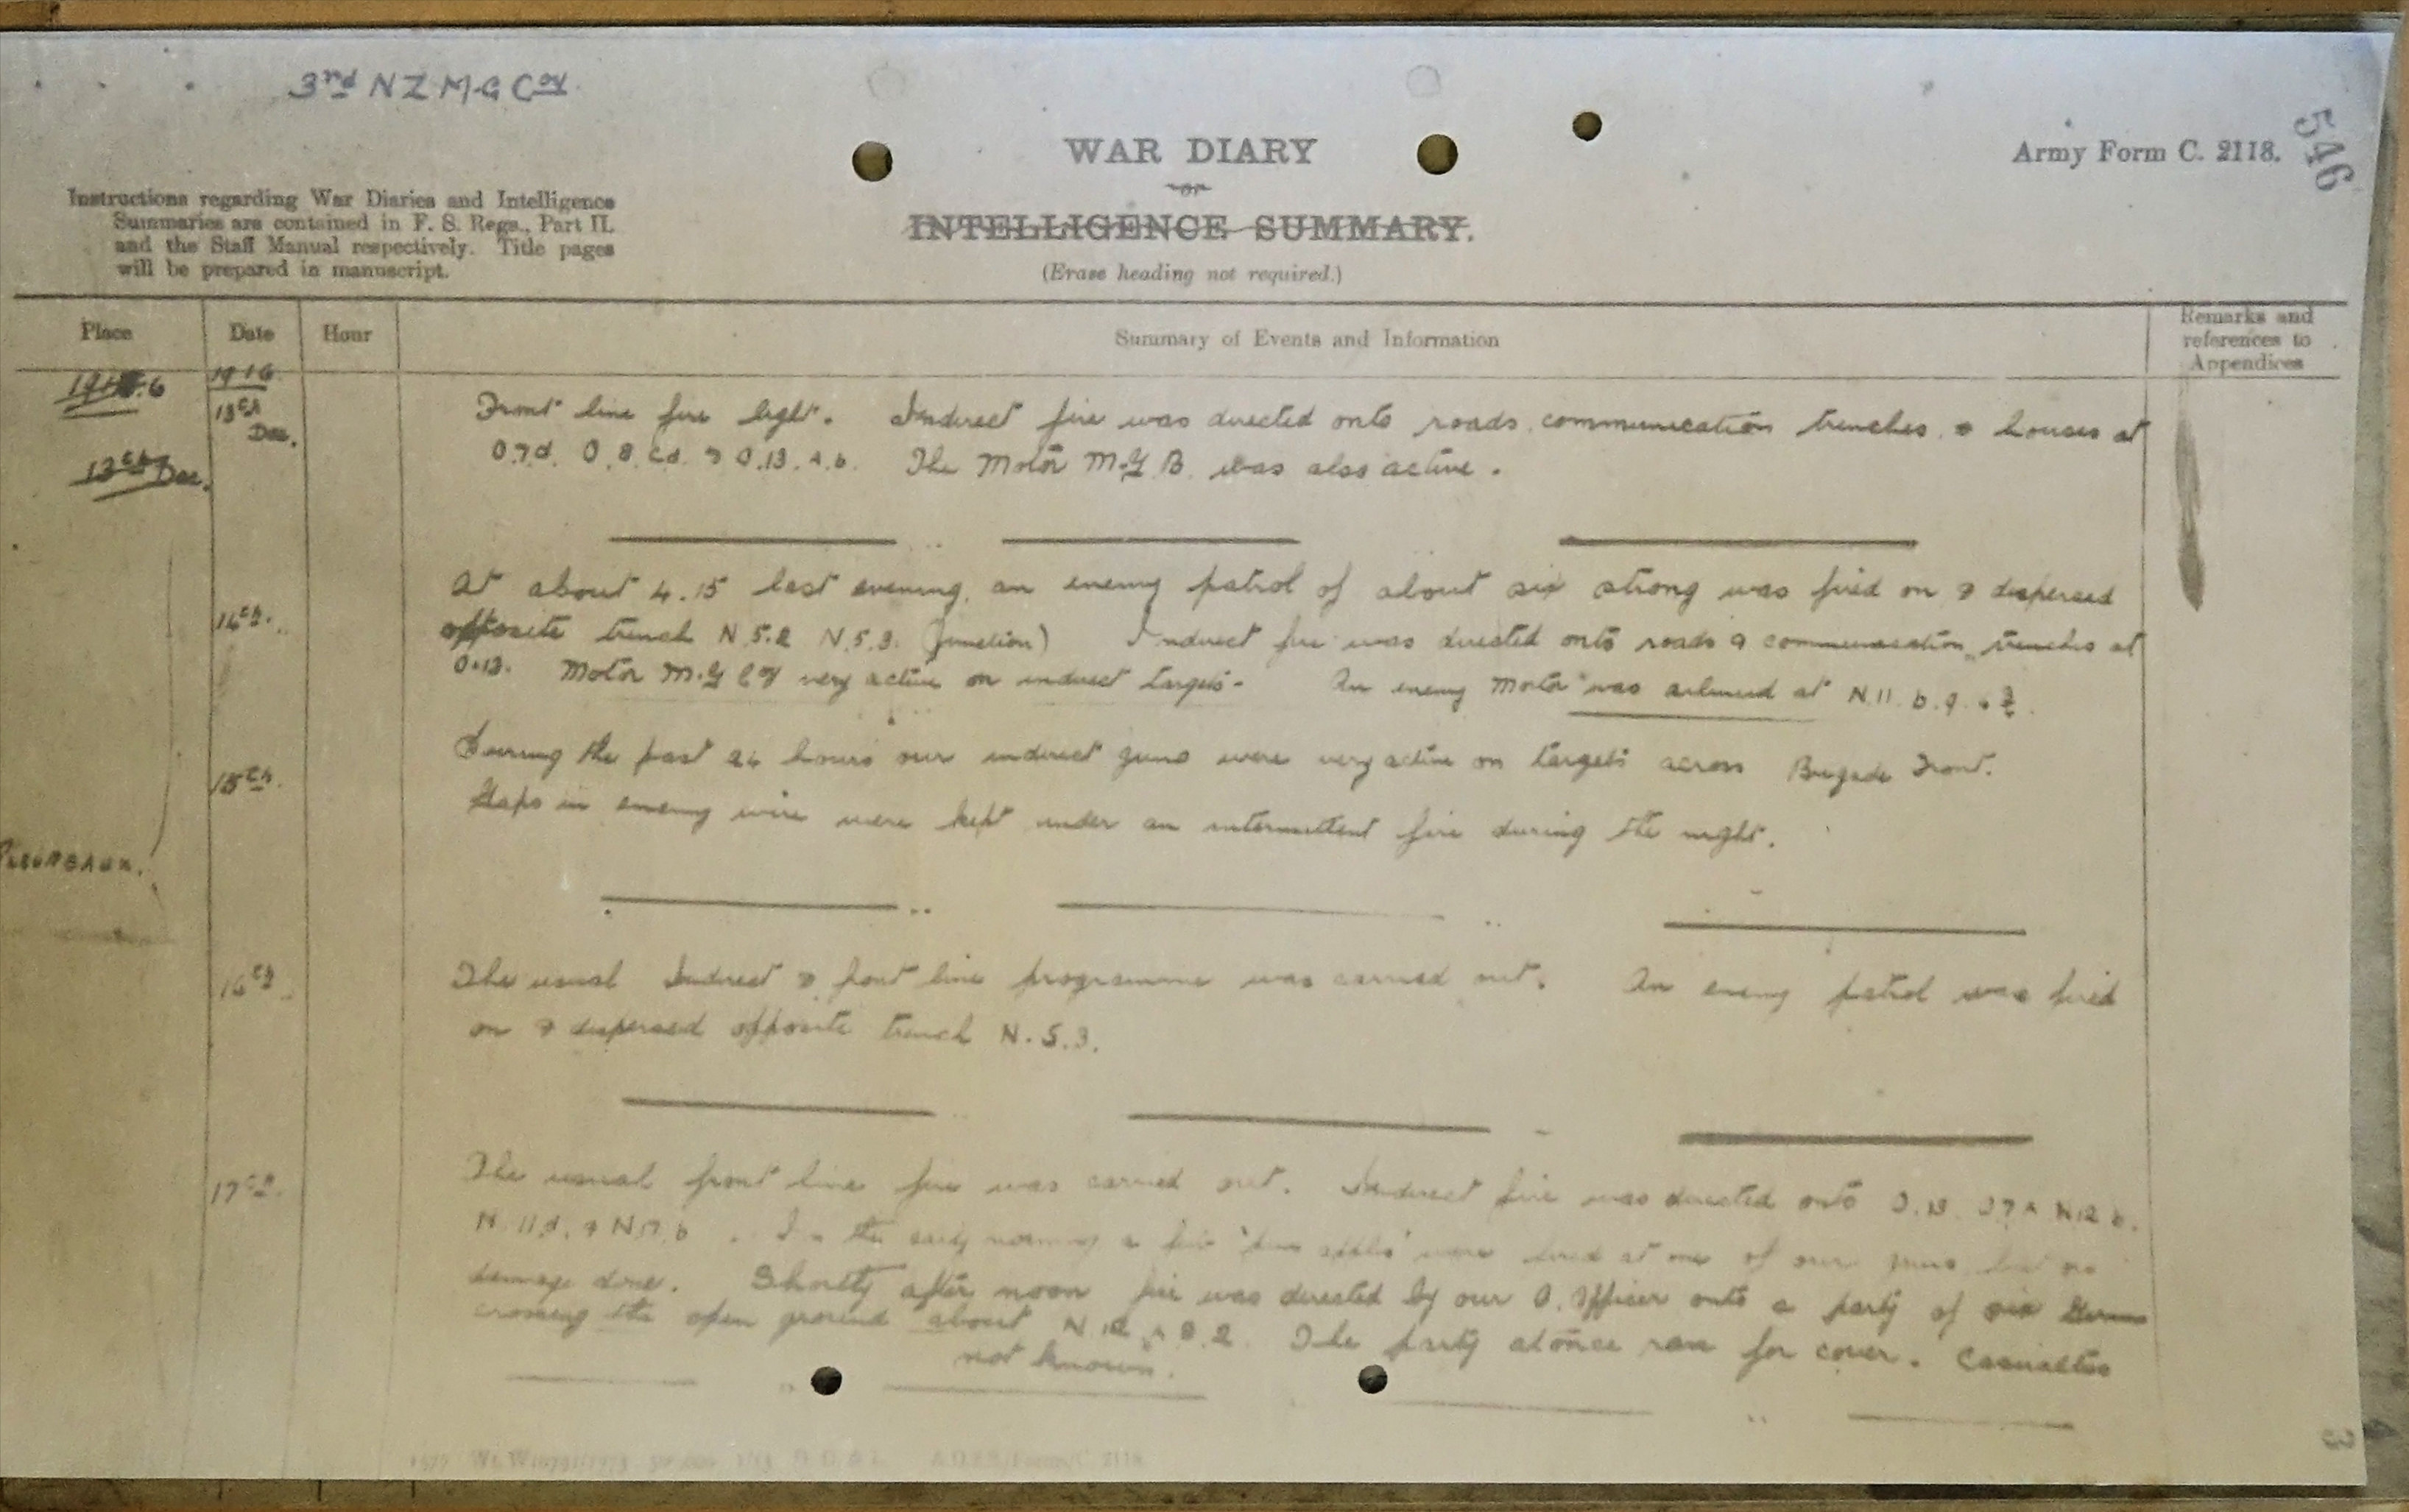 3rd N Z M-G Coy.
546
WAR DIARY
or
INTELLIGENCE SUMMARY.
(Erase heading not required.)
Army Form C. 2118.
Instructions regarding War Diaries and Intelligence
Summaries are contained in F. S. Regs., Part II.
and the Staff Manual respectively. Title pages
will be prepared in manuscript.
Place
Date
Hour
Summary of Events and Information
Remarks and
references to
Appendices
1916
13th
Dec.
13th Dec.
Front line fire light. Indirect fire was directed onto roads, communication trenches, & houses at
O.7.d. O.8.c.d. & O.13.a.b. The Motor M.G.B. was also active.
14th.
At about 4.15 last evening, an enemy patrol of about six strong was fired on & dispersed
opposite trench N.5.2 N.5.3. (Junction) Indirect fire was directed onto roads & communication trenches at
O.13. Motor M.G Coy very active on indirect targets. An enemy Mortar was silenced at N.11.b.9.
15th.
During the past 24 hours our indirect guns were very active on targets across Brigade Front.
Gaps in enemy wire were kept under an intermittent fire during the night.
16th
The usual Indirect & front line programme was carried out. An enemy patrol was fired
on & dispersed opposite trench N.5.3.
17th.
The usual front line fire was carried out. Indirect fire was directed onto O.13. O7A N12 b.
N.11.d. & N17.b. In the early morning a few 'pine apples' were fired at one of our guns, but no
damage done. Shortly after noon fire was directed by our O. Officer onto a party of six
crossing the open ground about N.12.A.8.2. The party at once ran for cover. Casualties
not known.